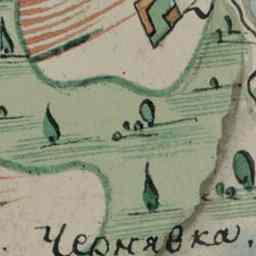 Чернявка.